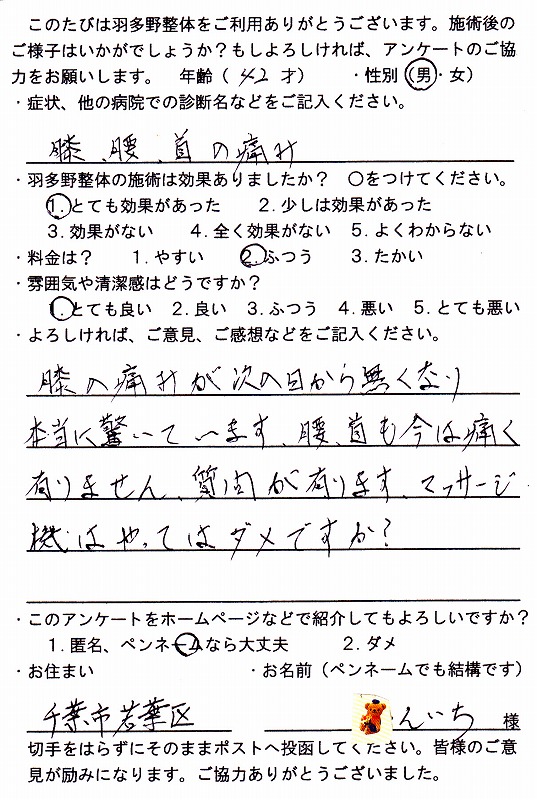 このたびは羽多野整体をご利用ありがとうございます。施術後の
ご様子はいかがでしょうか？もしよろしければ、アンケートのご協
力をお願いします。 年齢（ 42 才） ・性別（男・女）
・症状、他の病院での診断名などをご記入ください。
膝、腰、首の痛み
・羽多野整体の施術は効果ありましたか？ ○をつけてください。
1. とても効果があった 2. 少しは効果があった
3. 効果がない 4. 全く効果がない 5. よくわからない
・料金は？ 1. やすい 2. ふつう 3. たかい
・雰囲気や清潔感はどうですか？
1. とても良い 2. 良い 3. ふつう 4. 悪い 5. とても悪い
・よろしければ、ご意見、ご感想などをご記入ください。
膝の痛みが次の日から無くなり
本当に驚いています、腰、首も今は痛く
有りません、質問が有ります、マッサージ
機はやってはダメですか？
・このアンケートをホームページなどで紹介してもよろしいですか？
1. 匿名、ペンネームなら大丈夫 2. ダメ
・お住まい ・お名前（ペンネームでも結構です）
千葉市若葉区 んいち 様
切手をはらずにそのままポストへ投函してください。皆様のご意
見が励みになります。ご協力ありがとうございました。